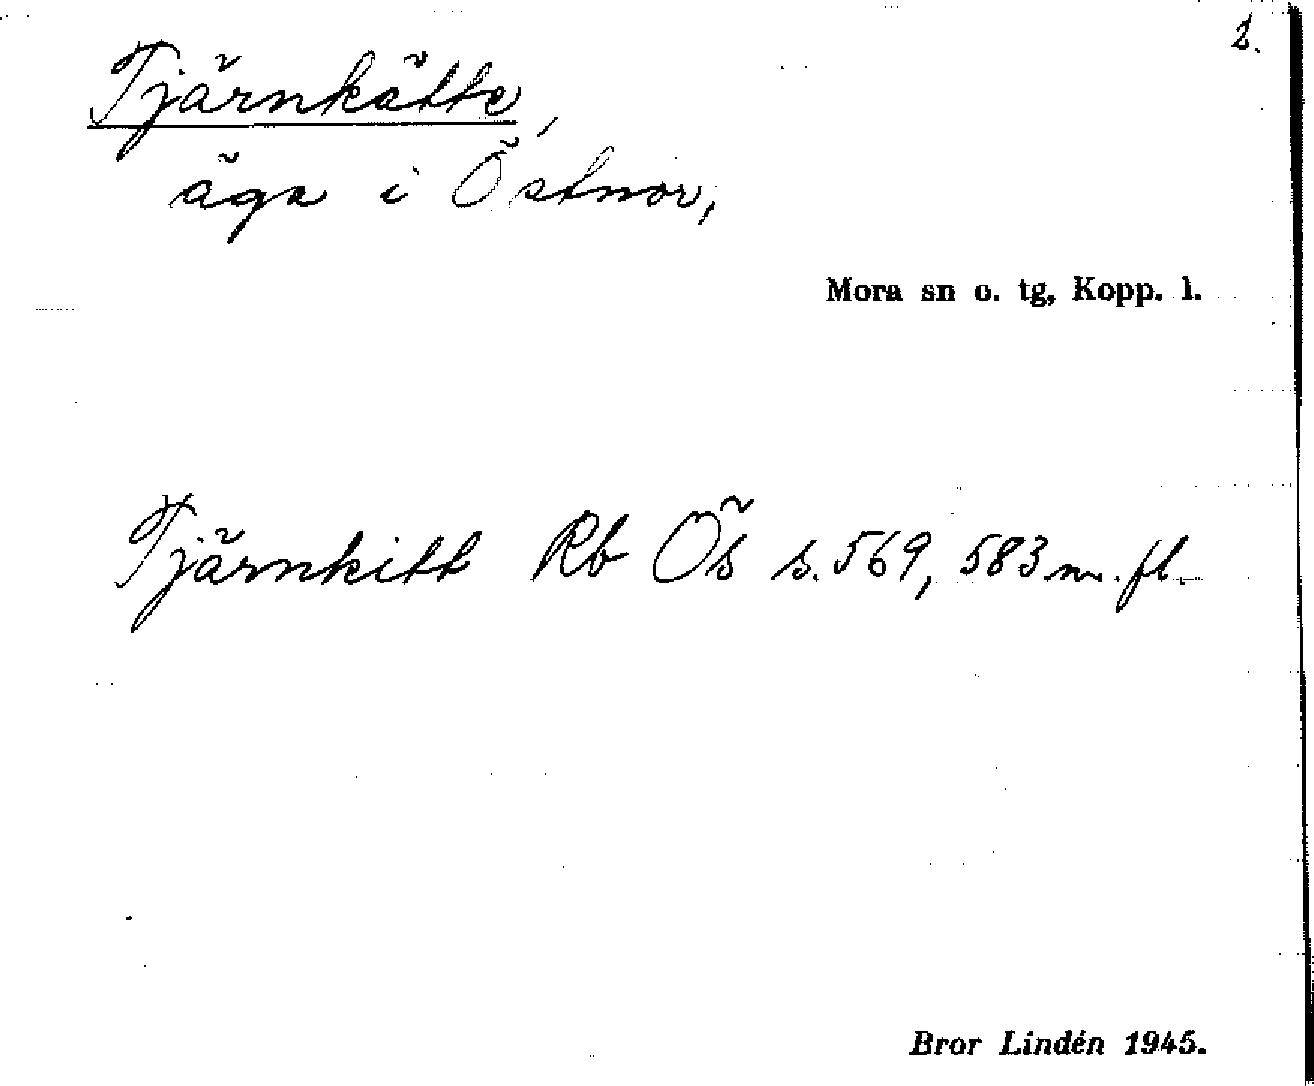 2.
Tjärnkätte,
äga i Östnor,
Mora sn o. tg, Kopp. l.
Tjärnkitt Rb Ös s. 569, 583 m. fl.
Bror Lindén 1945.